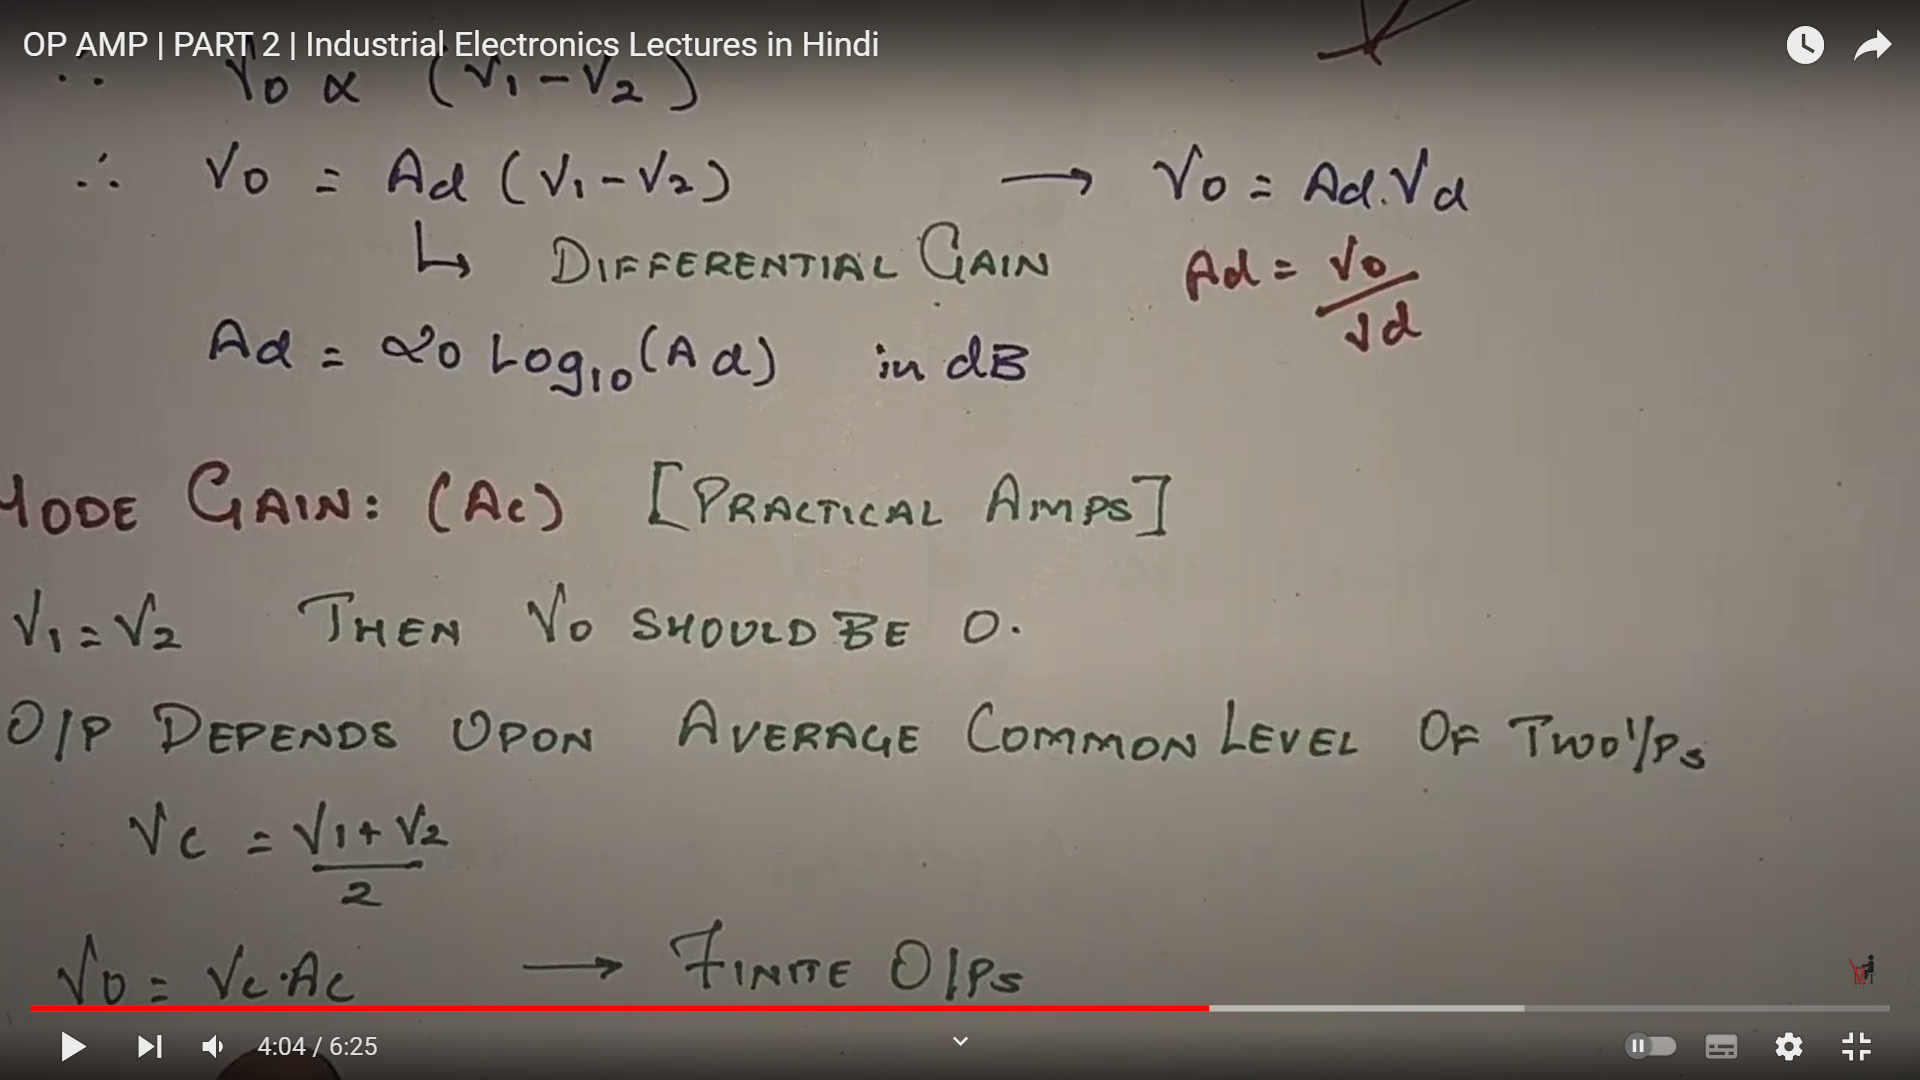 OP AMP | PART 2 | Industrial Electronics Lectures in Hindi
∴ V0 ∝ (V1-V2)
∴ V0 = Ad (V1-V2) → V0 = Ad.Vd
↳ DIFFERENTIAL GAIN Ad = V0/Vd
Ad = 20 Log10(Ad) in dB
MODE GAIN: (Ac) [PRACTICAL AMPS]
V1=V2 THEN V0 SHOULD BE 0.
O/P DEPENDS UPON AVERAGE COMMON LEVEL OF TWO I/Ps
Vc = V1+V2/2
V0 = Vc.Ac → FINITE O/Ps
MT
4:04 / 6:25